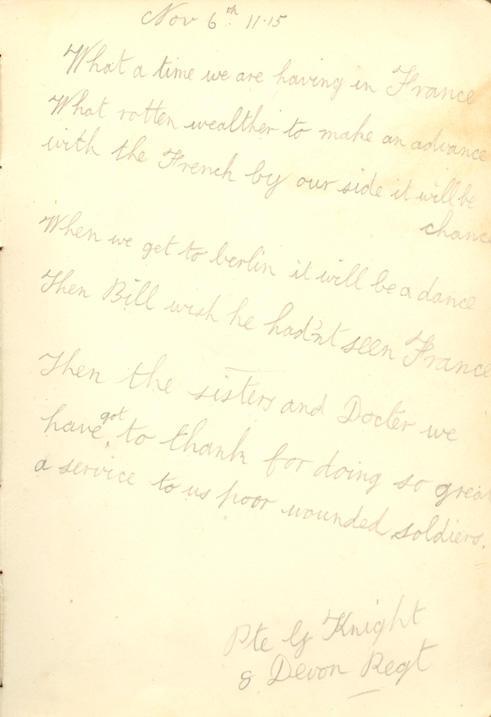 Nov 6th 11.15
What a time we are having in France
What rotten wealther to make an advance
with the French by our side it will be
chance
When we get to berlin it will be a dance
Then Bill wish he had'nt seen France
Then the sisters and Docter we
have got to thank for doing so great
a service to us poor wounded soldiers.
Pte G Knight
8 Devon Regt